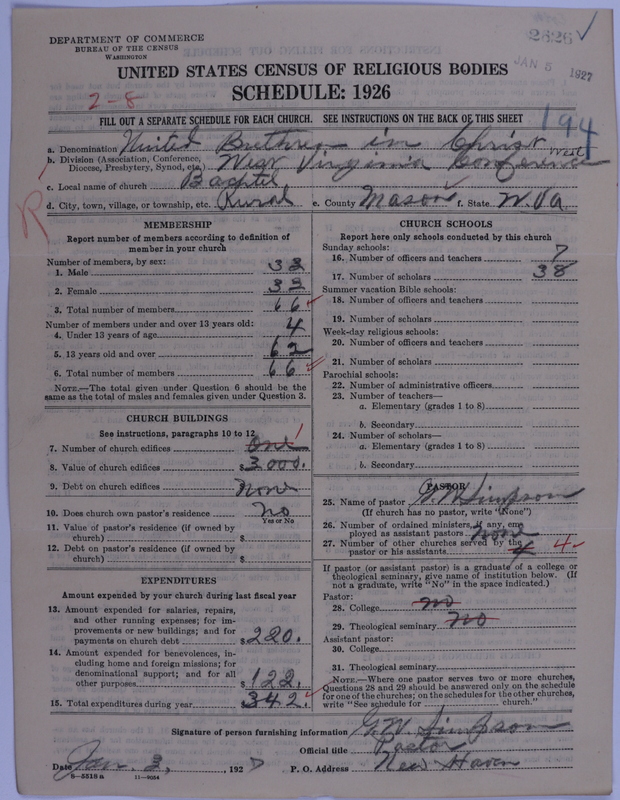 2626 ✓
DEPARTMENT OF COMMERCE
BUREAU OF THE CENSUS
WASHINGTON
JAN 5 1927
UNITED STATES CENSUS OF RELIGIOUS BODIES
SCHEDULE: 1926
2-8
FILL OUT A SEPARATE SCHEDULE FOR EACH CHURCH. SEE INSTRUCTIONS ON THE BACK OF THIS SHEET
194
a. Denomination United Brethren in Christ
b. Division (Association, Conference, Diocese, Presbytery, Synod, etc.) West Virginia Conference West
c. Local name of church Bachtel
R
d. City, town, village, or township, etc. Rural e. County Mason f. State W. Va.
MEMBERSHIP
Report number of members according to definition of
member in your church
Number of members, by sex:
1. Male 33
2. Female 33
3. Total number of members 66
Number of members under and over 13 years old:
4. Under 13 years of age 4
5. 13 years old and over 62
6. Total number of members 66
NOTE.—The total given under Question 6 should be the
same as the total of males and females given under Question 3.
CHURCH BUILDINGS
See instructions, paragraphs 10 to 12
7. Number of church edifices one 1
8. Value of church edifices $3000.
9. Debt on church edifices None
10. Does church own pastor's residence No
Yes or No
11. Value of pastor's residence (if owned by
church) $
12. Debt on pastor's residence (if owned by
church) $
EXPENDITURES
Amount expended by your church during last fiscal year
13. Amount expended for salaries, repairs,
and other running expenses; for im-
provements or new buildings; and for
payments on church debt $220.
14. Amount expended for benevolences, in-
cluding home and foreign missions; for
denominational support; and for all
other purposes $122.
15. Total expenditures during year $342.
CHURCH SCHOOLS
Report here only schools conducted by this church
Sunday schools:
16. Number of officers and teachers 7
17. Number of scholars 38
Summer vacation Bible schools:
18. Number of officers and teachers
19. Number of scholars
Week-day religious schools:
20. Number of officers and teachers
21. Number of scholars
Parochial schools:
22. Number of administrative officers
23. Number of teachers—
a. Elementary (grades 1 to 8)
b. Secondary
24. Number of scholars—
a. Elementary (grades 1 to 8)
b. Secondary
PASTOR
25. Name of pastor G. W. Simpson
(If church has no pastor, write "None")
26. Number of ordained ministers, if any, em-
ployed as assistant pastors none
27. Number of other churches served by the
pastor or his assistants 4 4
If pastor (or assistant pastor) is a graduate of a college or
theological seminary, give name of institution below. (If
not a graduate, write "No" in the space indicated.)
Pastor:
28. College no
29. Theological seminary no
Assistant pastor:
30. College
31. Theological seminary
NOTE.—Where one pastor serves two or more churches,
Questions 28 and 29 should be answered only on the schedule
for one of the churches; on the schedules for the other churches,
write "See schedule for church."
Signature of person furnishing information G. W. Simpson
Official title Pastor
Date Jan. 3, 1927 P. O. Address New Haven
8-5518 a 11-9054